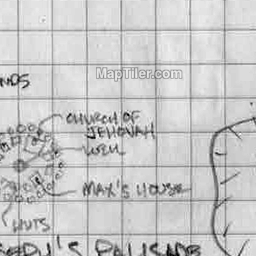 MapTiler.com
NDS
CHURCH OF
JEHOVAH
WELL
MAX'S HOUSE
HUTS
EPH'S PALISADE